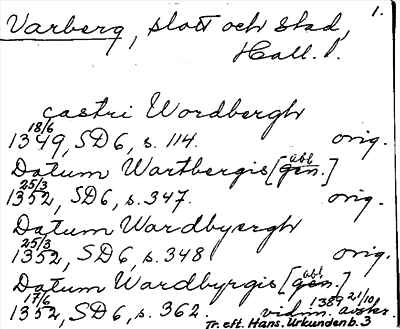 1.
Varberg, slott och stad,
Hall. l.
castri Wordbergh
18/6
1349, SD 6, s. 114. orig.
Datum Wartbergis [abl gen.]
25/3
1352, SD 6, s. 347. orig.
Datum Wardbyergh
25/3
1352, SD 6, s. 348 orig.
Datum Wardbyrgis [abl. gen.]
17/6 1389 21/10
1352, SD 6, s. 362. vidim. avskr.
Tr. eft. Hans. Urkundenb. 3